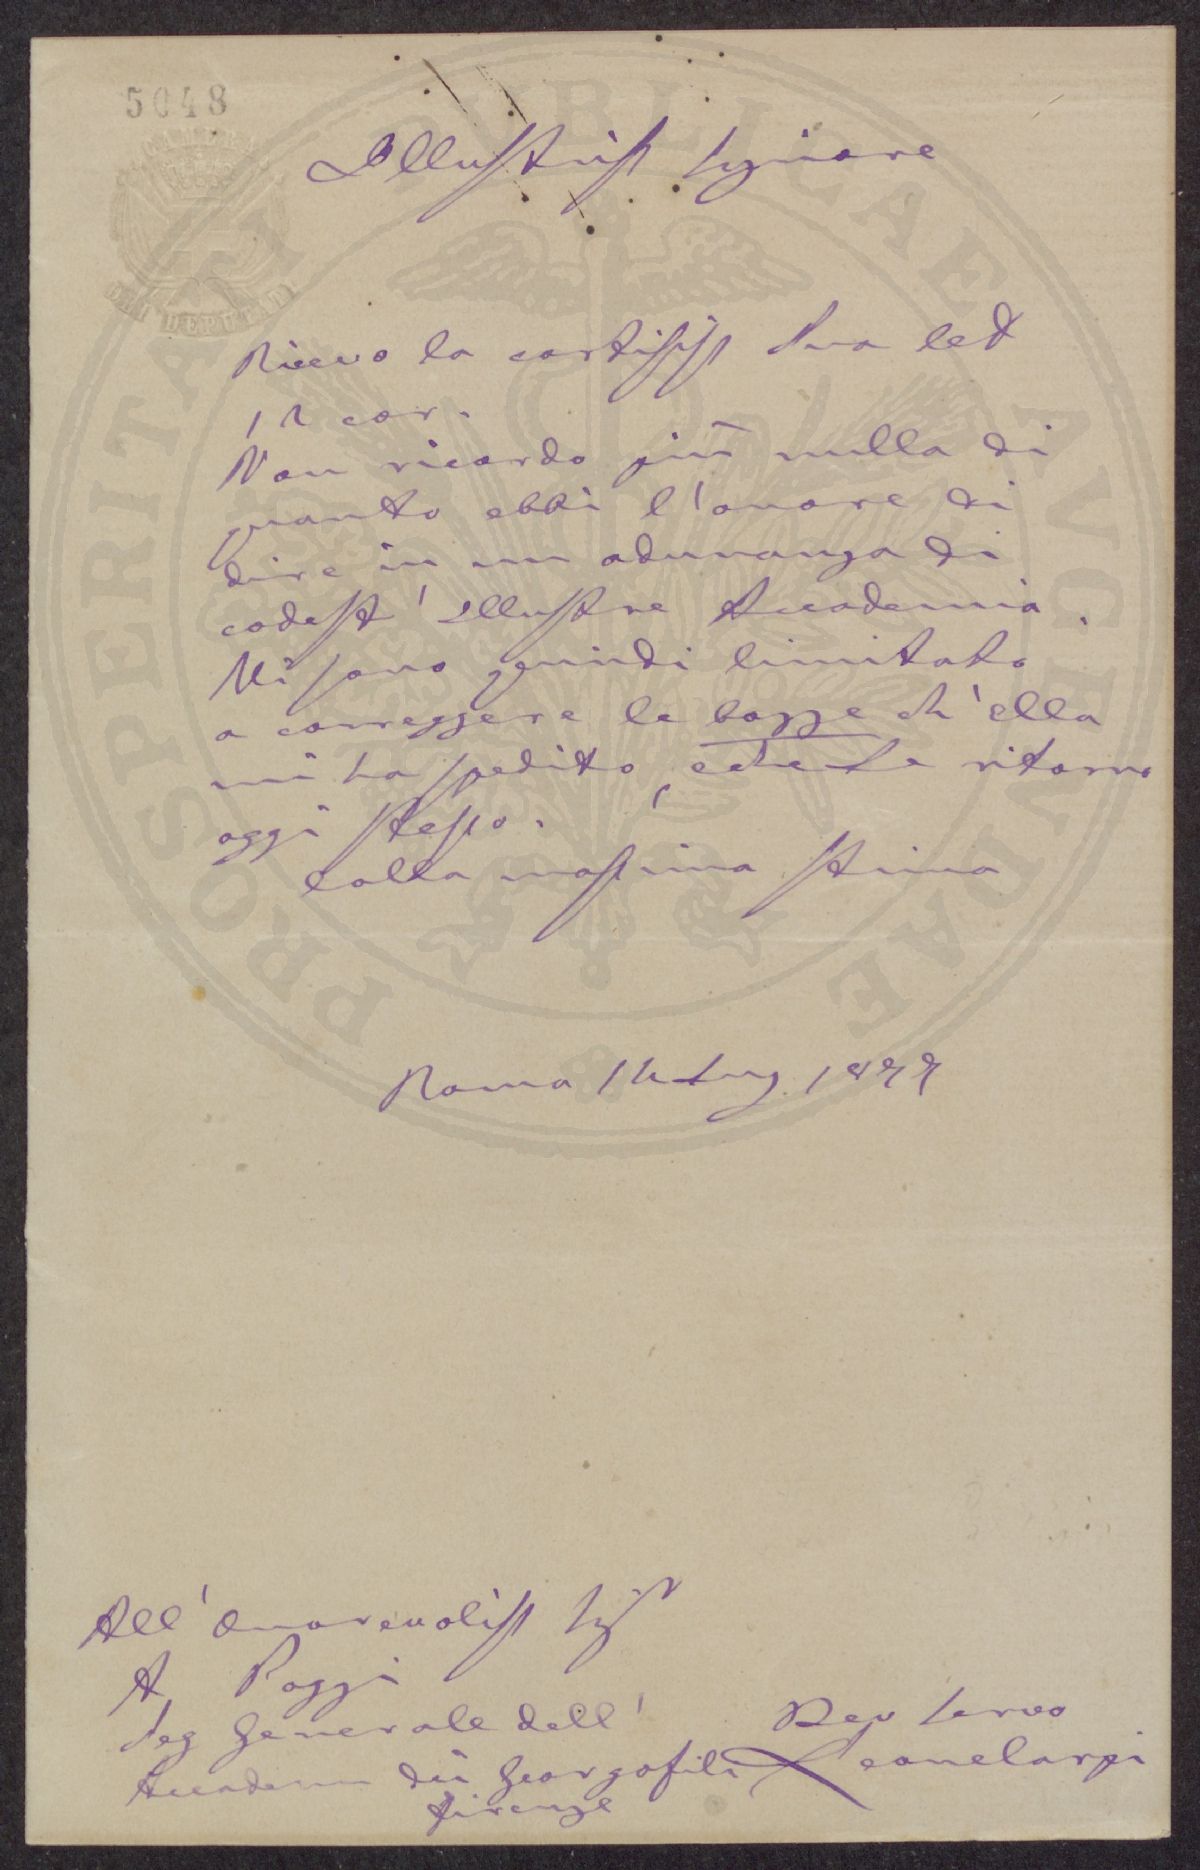 5048
CAMERA
DEI DEPUTATI
PROSPERITATI PUBLICAE AVGENDAE
Illustriss Signore
Ricevo la cortesiss Sua let
12 cor.
Non ricordo più nulla di
quanto ebbi l'onore di
dire in un adunanza di
codest' Illustre Accademia.
Mi sono quindi limitato
a correggere le bozze ch'ella
mi ha spedito, e che Le ritorno
oggi stesso.
Colla massima stima
Roma 14 Lug 1877
All' Onorevoliss Sigr
A Poggi
Seg Generale dell'
Accadem dei Georgofili
Firenze
Dev Servo
Leone Carpi